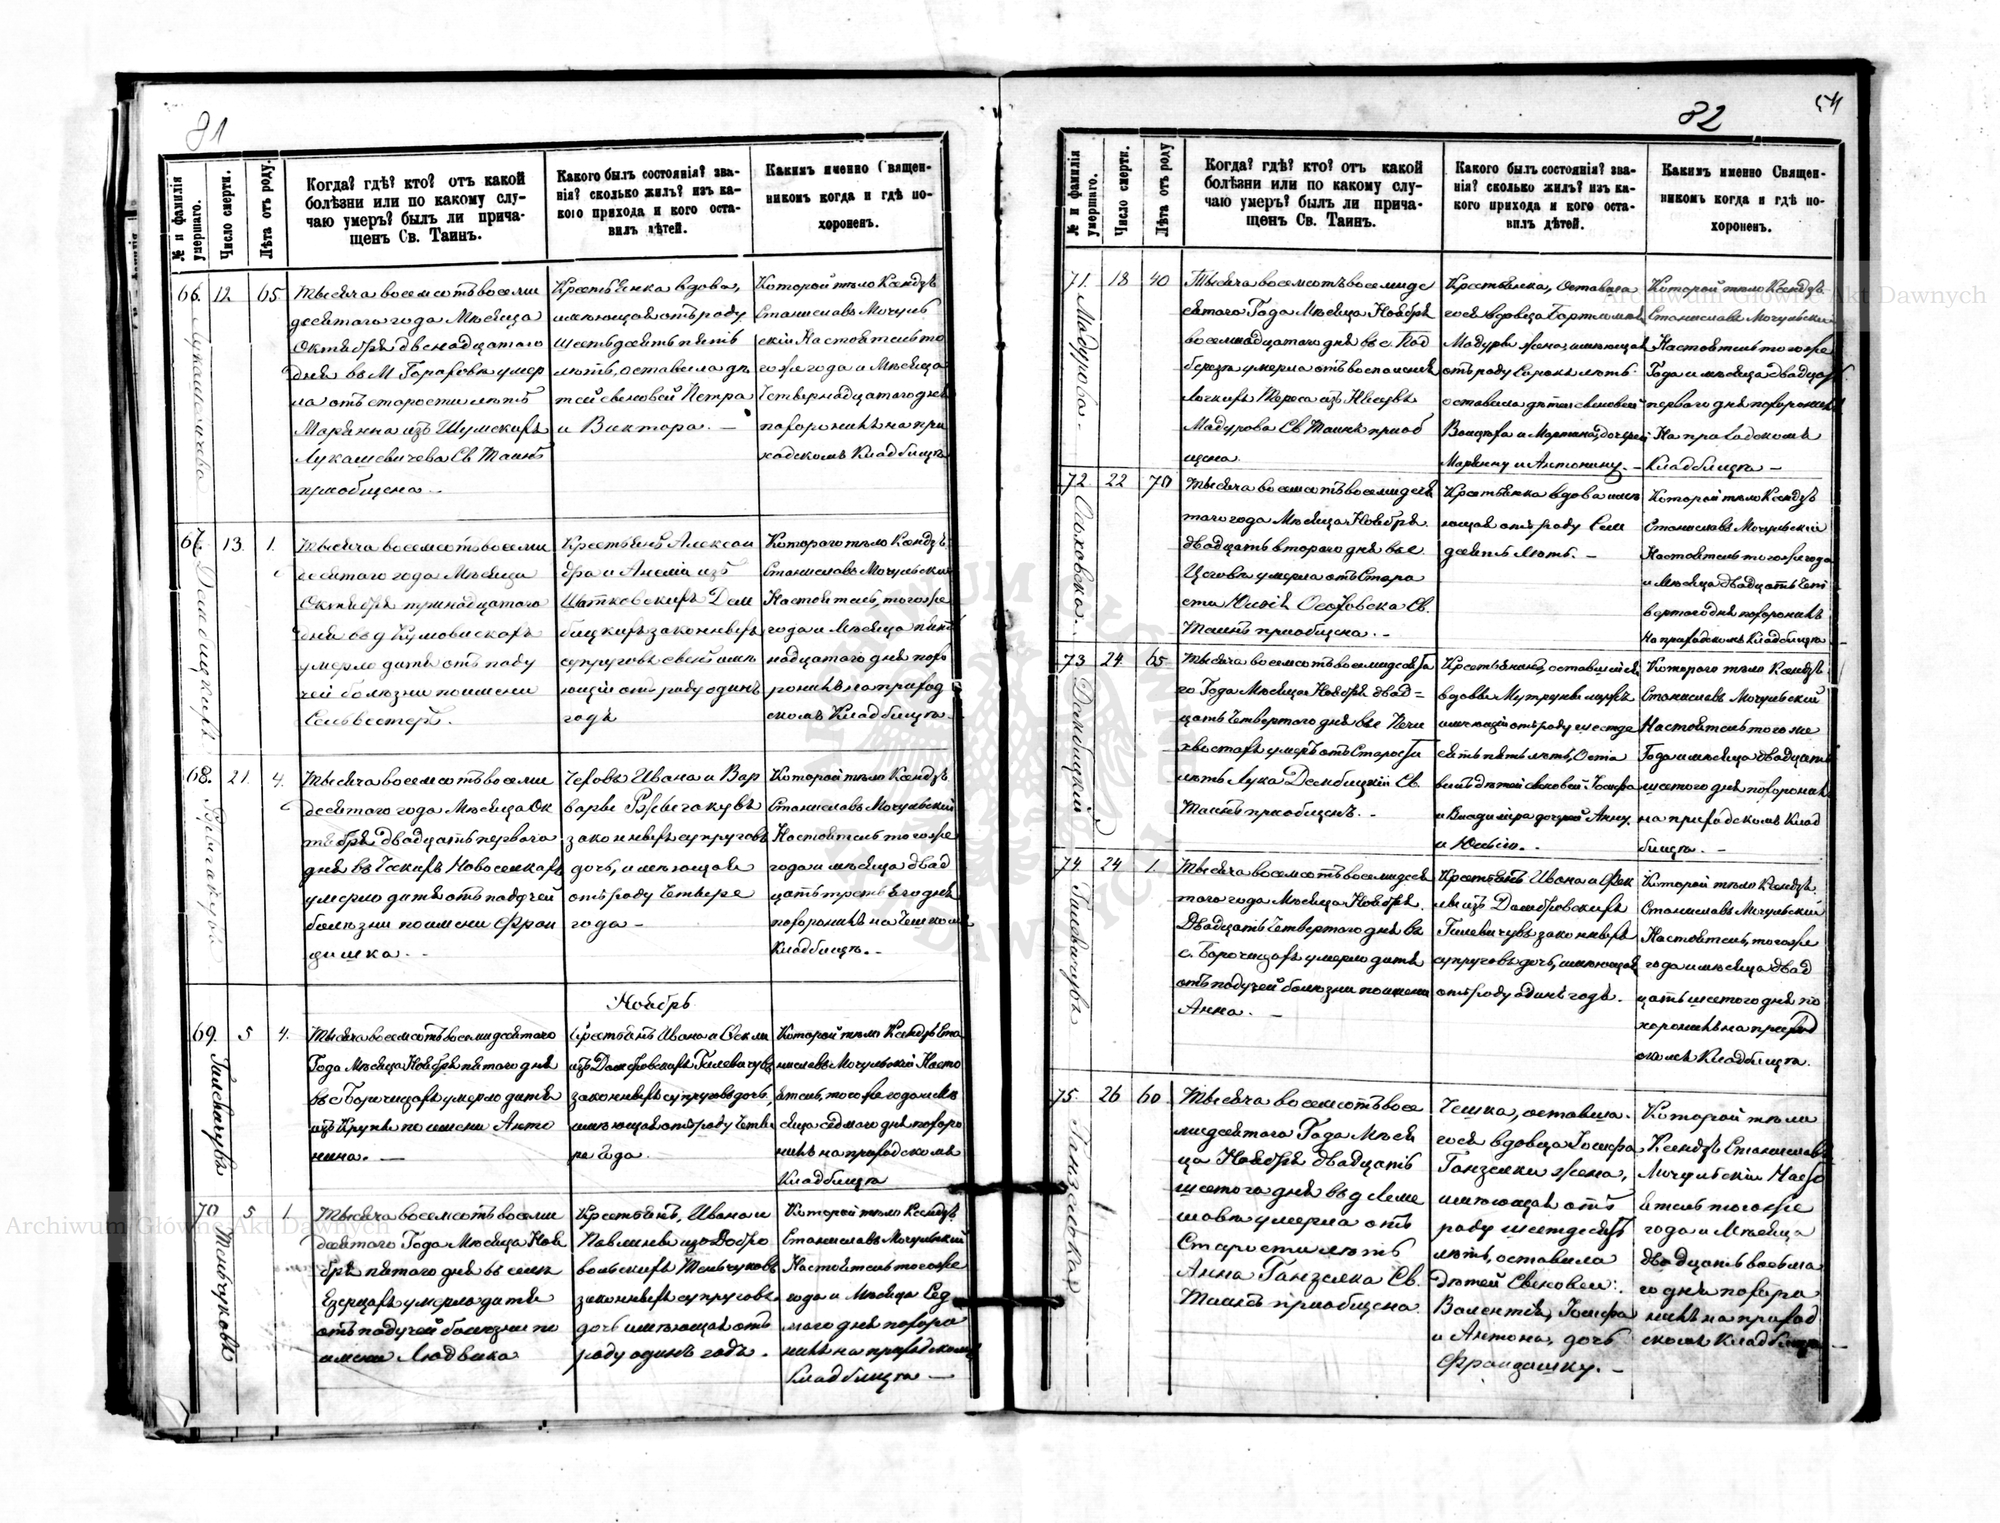 81
№ и фамилія умершаго.
Число смерти.
Лѣта отъ роду.
Когда? гдѣ? кто? отъ какой
болѣзни или по какому слу-
чаю умеръ? былъ ли прича-
щенъ Св. Таинъ.
Какого былъ состоянія? зва-
нія? сколько жилъ? изъ ка-
кого прихода и кого оста-
вилъ дѣтей.
Какимъ именно Священ-
никомъ когда и гдѣ по-
хороненъ.
66. 12 65.
Лукашевичева
Тысяча восемсотъ восеми
десятого года Мѣсяца
Октября двенадцатого
дня въ М Гороховѣ умер
ла отъ старости лѣтъ
Марянна изъ Шумскихъ
Лукашевичева Св Таинъ
приобщена
Крестьянка вдова,
имѣющая отъ роду
шестьдесятъ пять
лѣтъ, оставила дѣ
тей сыновей Петра
и Виктора. —
Которой тѣло Ксендзъ
Станиславъ Мочуль
скій Настоятель то
гоже года и Мѣсяца
Четвернадцатого дня
похоронилъ на при
ходскомъ Кладбищѣ
67. 13. 1.
Тысяча восемсотъ восеми
десятого года Мѣсяца
Октября тринадцатого
дня въ д
умерло дитя отъ паду
чей болѣзни по имени
Сильвестеръ.
Крестьянъ Алексан
дра и Анеліи изъ
Дем
бицкихъ законныхъ
супруговъ сынъ имѣ
ющій отъ роду одинъ
годъ
Которого тѣло Ксендзъ
Станиславъ Мочульскій
Настоятель, тогоже
года и Мѣсяца пят
надцатого дня похо
ронилъ на приход
скомъ Кладбищѣ
68. 21. 4.
Тысяча восемсотъ восеми
десятого года Мѣсяца Ок
тября двадцать первого
дня въ Ческихъ Новоселкахъ
умерло дитя отъ падучей
болѣзни по имени Фран
цишка. -
Чеховъ Ивана и Вар
вары
законныхъ супруговъ
дочь, имѣющая
отъ роду Четыре
года —
Которой тѣло Ксендзъ
Станиславъ Мочульскій
Настоятель тогоже
года и мѣсяца двад
цать третьяго дня
похоронилъ на Чешскомъ
Кладбищѣ. -
Ноябрь
69. 5 4.
Гилевичувъ
Тысяча восемсотъ восемидесятого
Года Мѣсяца Ноября пятого дня
въ с Борочицахъ умерло дитя
изъ Крупы по имени Анто
нина. —
Крестьянъ Ивана и Фекли
изъ Домбровскихъ Гилевичувъ
законныхъ супруговъ дочь,
имѣющая отъ роду Четы
ре года.
Которой тѣло Ксендзъ Ста
ниславъ Мочульскій Насто
ятель, тогоже года и Мѣ
сяца седмого дня похоро
нилъ на приходскомъ
Кладбищѣ
70 5 1
Тысяча восемсотъ восеми
десятого Года Мѣсяца Ноя
бря пятого дня въ селѣ
Езерцахъ умерло дитя
отъ падучей болѣзни по
имени Людвика
Крестьянъ, Ивана и
Павлины изъ Добро
вольскихъ
законныхъ супруговъ
дочь имѣющая отъ
роду одинъ годъ.
Которой тѣло Ксендзъ
Станиславъ Мочульскій
Настоятель тогоже
года и Мѣсяца Сед
мого дня похоро
нилъ на приходскомъ
Кладбищѣ —
82
54
№ и фамилія умершаго.
Число смерти.
Лѣта отъ роду
Когда? гдѣ? кто? отъ какой
болѣзни или по какому слу-
чаю умеръ? былъ ли прича-
щенъ Св. Таинъ.
Какого былъ состоянія? зва-
нія? сколько жилъ? изъ ка-
кого прихода и кого оста-
вилъ дѣтей.
Какимъ именно Священ-
никомъ когда и гдѣ по-
хороненъ.
71. 18 40
Мадурова.
Тысяча восемсотъ восемиде
сятого Года Мѣсяца Ноября
восемнадцатого дня въ с. Под
березѣ умерла отъ воспаленія
Тереса изъ
Мадурова Св Таинъ приоб
щена.
Крестьянка, оставила
гося вдовца Бартломея
Мадуры жена, имѣющая
отъ роду Сорокъ лѣтъ
оставила дѣтей сыновей
и Мартина, дочерей
Марянну и Антонину. —
Которой тѣло Ксендзъ
Станиславъ Мочульскій
Настоятель тогоже
Года и мѣсяца двадцать
первого дня похоронилъ
На приходскомъ
Кладбищѣ —
72 22 70
Тысяча восемсотъ восемидеся
того года Мѣсяца Ноября
двадцать второго дня въ с
умерла отъ Старо
сти Юлія Св.
Таинъ приобщена. -
Крестьянка вдова имѣ
ющая отъ роду Сем
десятъ лѣтъ. —
Которой тѣло Ксендзъ
Станиславъ Мочульскій
Настоятель тогоже года
и Мѣсяца двадцать Чет
вертого дня похоронилъ
на приходскомъ Кладбищѣ
73 24. 65
Дембицкій
Тысяча восемсотъ восемидесята
го Года Мѣсяца Ноября двад=
цать Четвертого дня въ с Печи
хвостахъ умеръ отъ Старости
лѣтъ Лука Дембицкій Св.
Таинъ приобщенъ. -
Крестьянинъ, оставшейся
вдовы мужъ
имѣющій отъ роду шестьде
сятъ пять лѣтъ, Оста
вилъ дѣтей сыновей Іосифа
и Владиміра дочерей Анну
и Юлію. -
Которого тѣло Ксендзъ
Станиславъ Мочульскій
Настоятель тогоже
Года и мѣсяца двадцать
шестого дня похоронилъ
на приходскомъ Клад
бищѣ. —
74 24 1
Гилевичувъ
Тысяча восемсотъ восемидеся
того года Мѣсяца Ноября.
Двадцать Четвертого дня въ
с. Борочицахъ умерло дитя
отъ падучей болѣзни по имени
Анна. —
Крестьянъ Ивана и Фек
лы изъ Домбровскихъ
Гилевичувъ законныхъ
супруговъ дочь, имѣющая
отъ роду одинъ годъ.
Которой тѣло Ксендзъ
Станиславъ Мочульскій
Настоятель, тогоже
года и мѣсяца двад
цать шестого дня по
хоронилъ на приход
скомъ Кладбищѣ.
75. 26 60
Ганзелкова
Тысяча восемсотъ восе
мидесятого Года Мѣся
ца Ноября двадцать
шестого дня въ д Леме
шовѣ умерла отъ
Старости лѣтъ
Анна Ганзелка Св.
Таинъ приобщена
Чешка, оставша
гося вдовца Іосифа
Ганзелки жена,
имѣющая отъ
роду шестдесятъ
лѣтъ, оставила
дѣтей Сыновей:
Валентія, Іосифа
и Антона, дочь
Францишку. —
Которой тѣло
Ксендзъ Станиславъ
Мочульскій Насто
ятель тогоже
года и Мѣсяца
двадцать восьма
го дня похоро
нилъ на приход
скомъ Кладбищѣ —
Archiwum Główne Akt Dawnych
Archiwum Główne Akt Dawnych